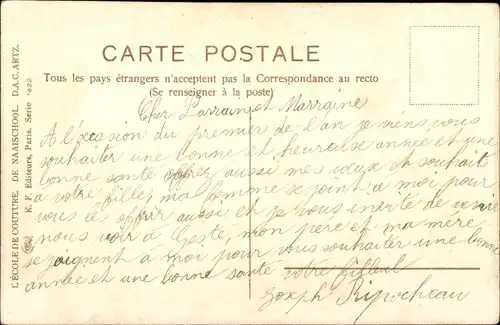 CARTE POSTALE
Tous les pays étrangers n'acceptent pas la Correspondance au recto
(Se renseigner à la poste)
L'ÉCOLE DE COUTURE. DE NAAISCHOOL. D.A.C. ARTZ.
E. F. Editeurs, Paris. Serie 1022
Cher Parrain et Marraine
A l'occasion du premier de l'an je viens vous
souhaiter une bonne et heureuse année et une
bonne santé aussi mes vœux et souhaits
à votre fille, ma femme se joint à moi pour
vous les offrir aussi et je vous invite de venir
nous voir à Geste, mon père et ma mère
se joignent à moi pour vous souhaiter une bonne
année et une bonne santé votre filleul
Joseph Ripocheau